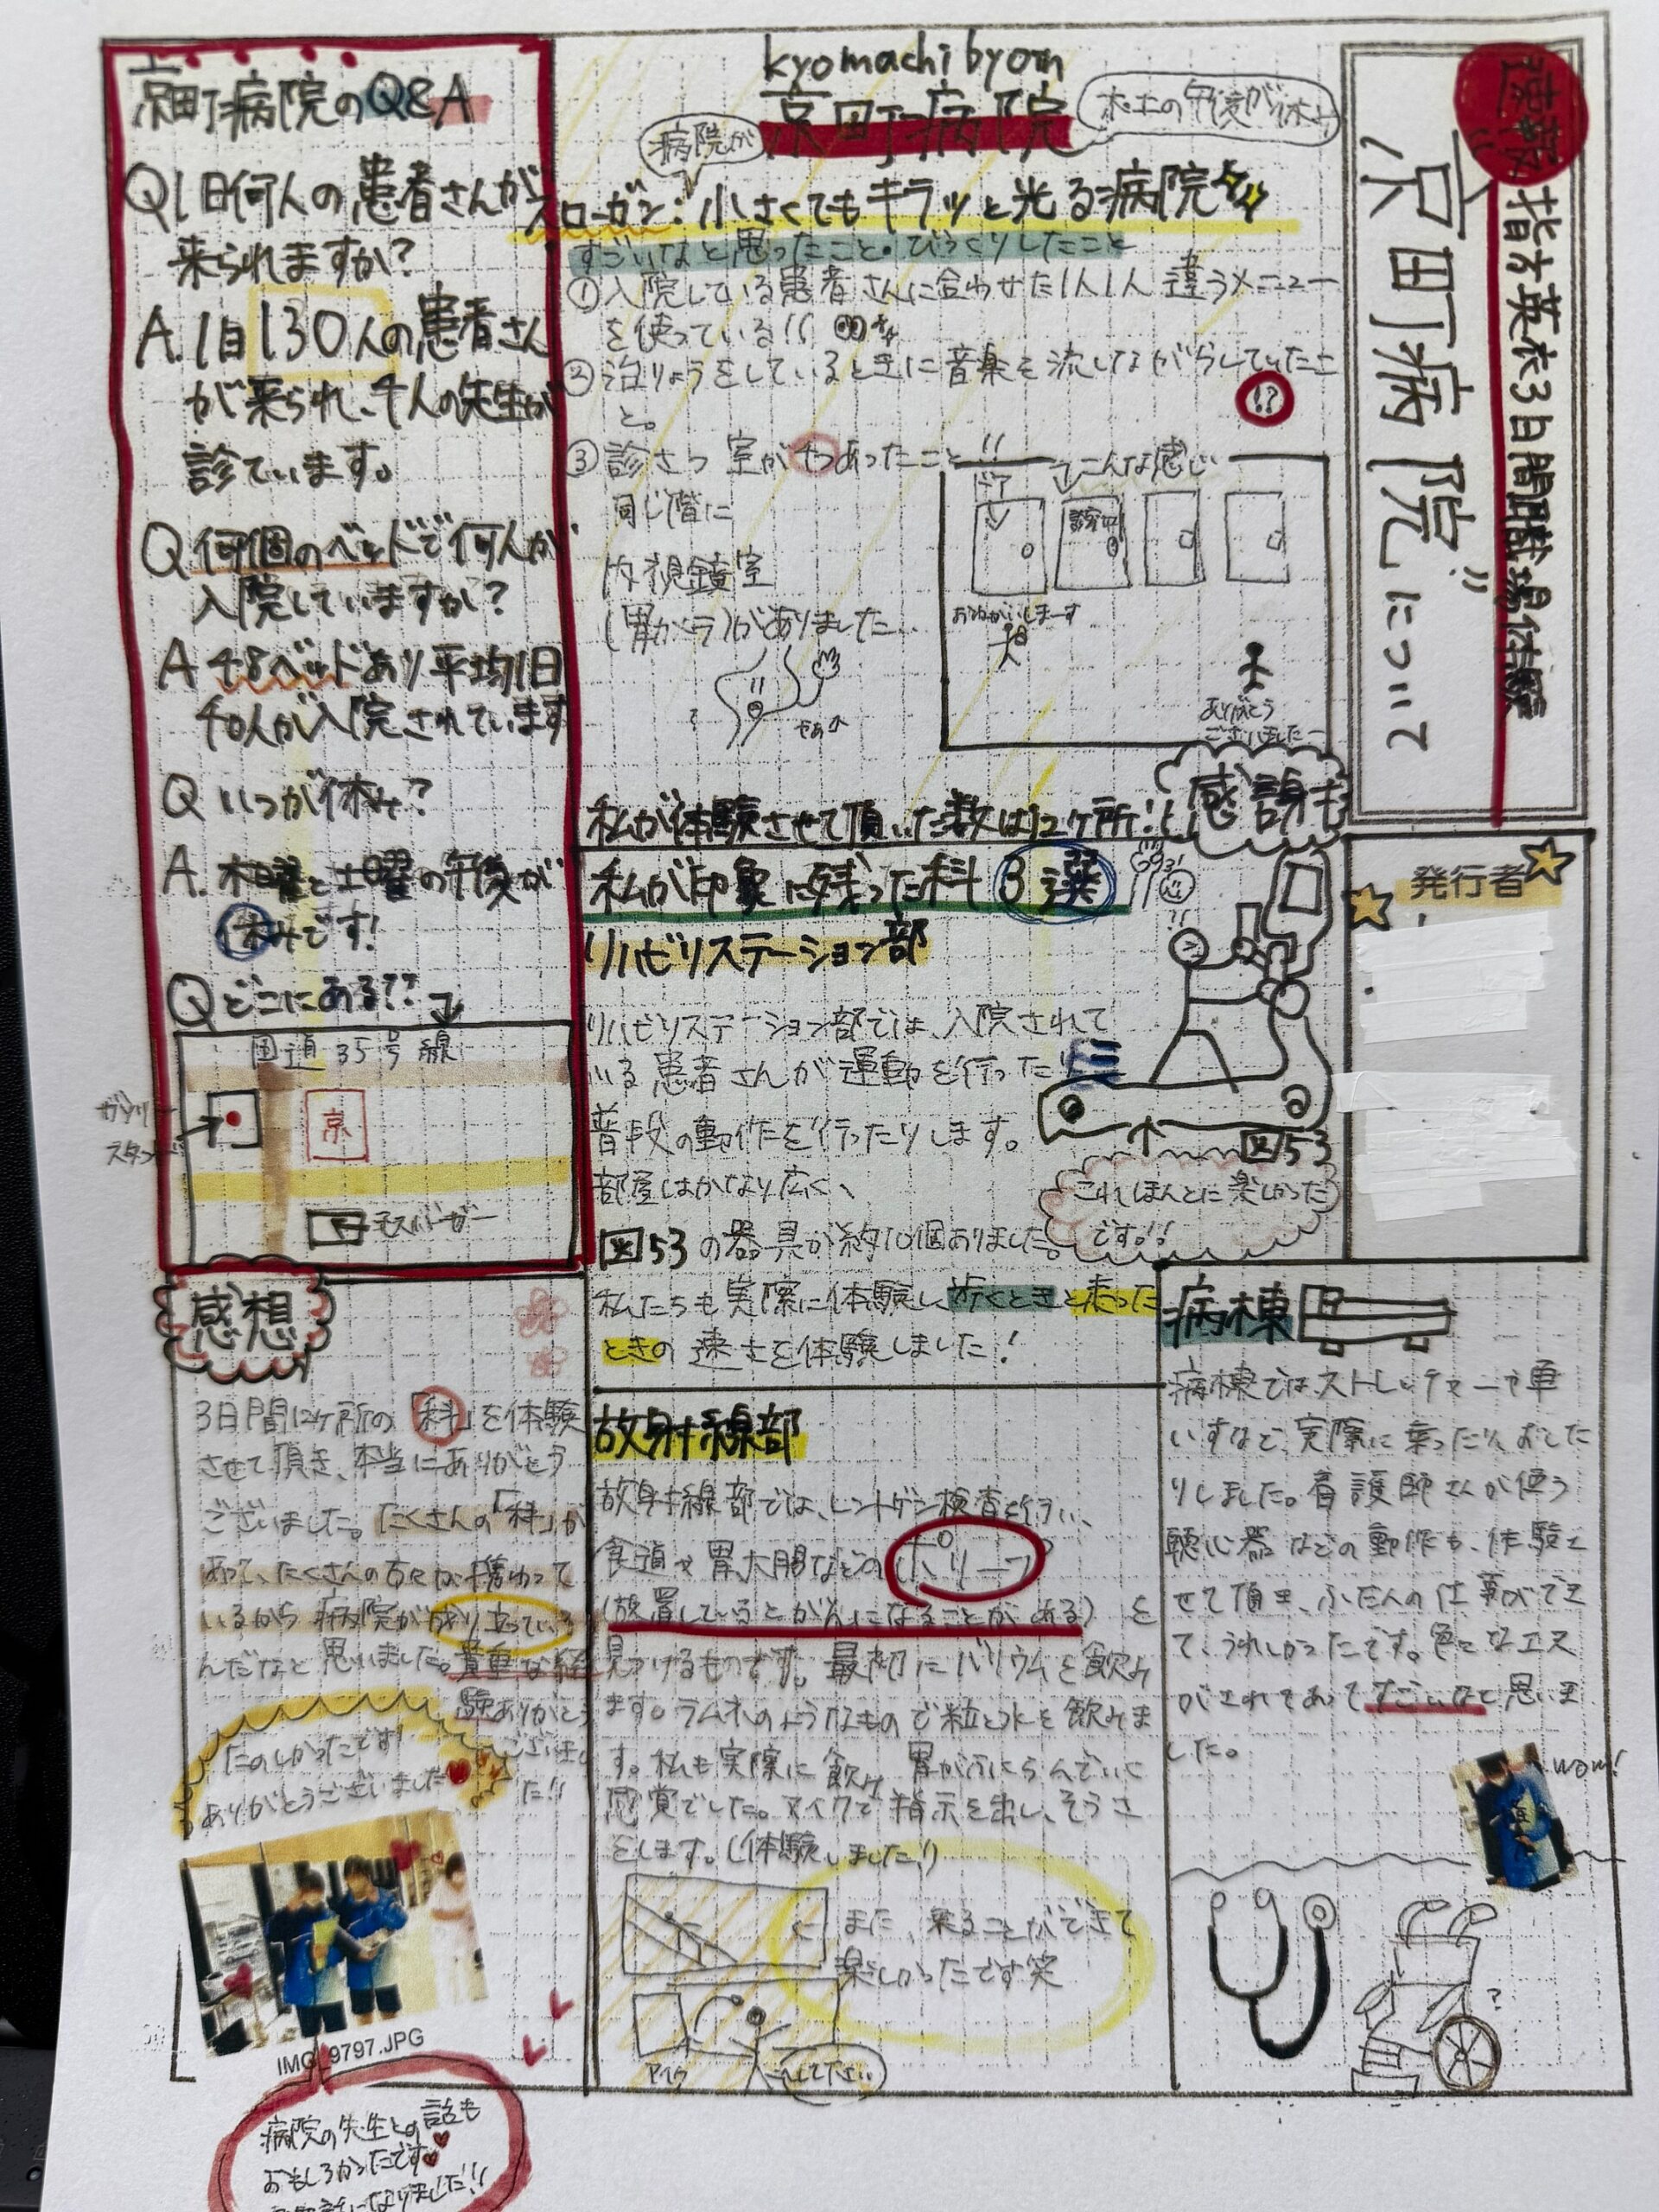 速報
3日間職場体験
京町病院について
発行者
kyomachi byoin
京町病院
木土の午後が休み
病院が
スローガン:小さくてもキラッと光る病院
すごいなと思ったこと。びっくりしたこと
①入院している患者さんに合わせた1人1人違うメニュー
を使っている!!
②治りょうをしているときに音楽を流しながらしていたこ
と。
!?
③診さつ室が4つあったこと!!
こんな感じ
ドア
診察中
おねがいしまーす
ありがとう
ございましたー
同じ階に
内視鏡室
(胃カメラ)がありました
やあ
私が体験させて頂いた数は12ヶ所!!
感謝も
京町病院のQ&A
Q1日何人の患者さんが
来られますか?
A.1日130人の患者さん
が来られ、4人の先生が
診ています。
Q何個のベッドで何人が
入院していますか?
A 48ベッドあり平均1日
40人が入院されています
Qいつが休み?
A.木曜と土曜の午後が
休みです!
Qどこにある??
国道35号線
ガソリン
スタンド
京
モスバーガー
私が印象に残った科3選
リハビリステーション部
リハビリステーション部では、入院されて
いる患者さんが運動を行ったり
普段の動作を行ったりします。
部屋はかなり広く、
図53の器具が約10個ありました。
私たちも実際に体験し、歩くときと走った
ときの速さを体験しました!
図53
これほんとに楽しかった
です!!
放射線部
放射線部では、レントゲン検査を行い、
食道や胃大腸などのポリープ
(放置しているとがんになることがある)を
見つけるものです。最初にバリウムを飲み
ます。ラムネのようなもので粒と水を飲みま
す。私も実際に飲み、胃がふくらんでいく
感覚でした。マイクで指示を出し、そうさ
をします。(体験しました!)
また、来ることができて
楽しかったです笑
マイク
~してください
病棟
病棟ではストレッチャーや車
いすなど、実際に乗ったり、おした
りしました。看護師さんが使う
聴心器などの動作も、体験さ
せて頂き、ふだんの仕事ができ
て、うれしかったです。色々な工夫
がされてあってすごいなと思いま
した。
wow!
感想
3日間12ヶ所の「科」を体験
させて頂き、本当にありがとう
ございました。たくさんの「科」が
あって、たくさんの方々が携わって
いるから病院が成り立っている
んだなと思いました。貴重な経
験ありがとう
ございまし
た!!
たのしかったです!
ありがとうございました
IMG_9797.JPG
病院の先生との話も
おもしろかったです